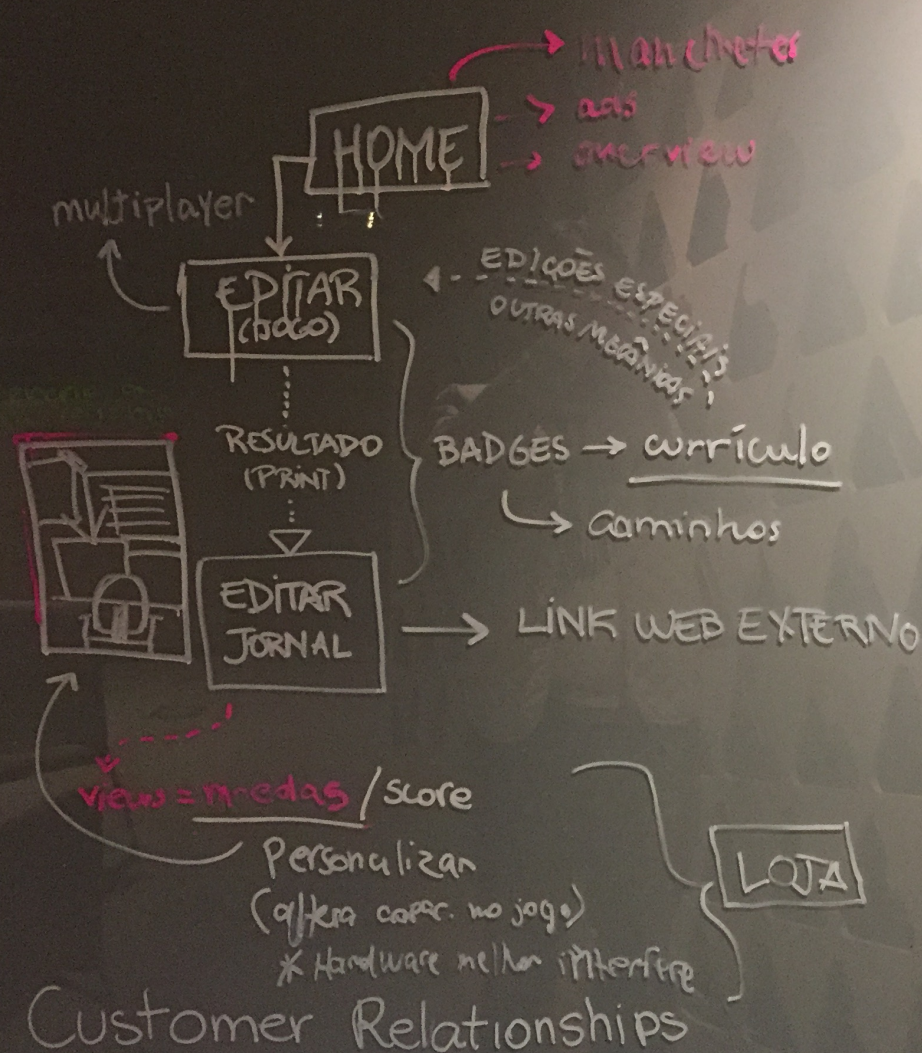 HOME
ads
overview
multiplayer
EDITAR
(JOGO)
EDIÇÕES ESPECIAIS
OUTRAS MECÂNICAS
RESULTADO
(PRINT)
BADGES → currículo
caminhos
EDITAR
JORNAL
→ LINK WEB EXTERNO
views = moedas / score
Personalizar
(altera capac. no jogo)
* Hardware melhor interfere
LOJA
Customer Relationships